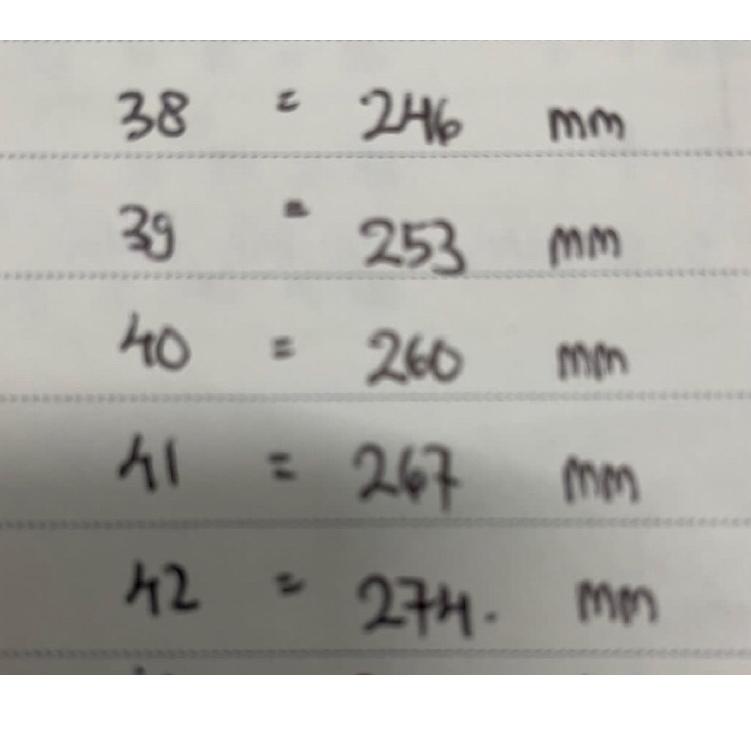 38 = 246 mm
39 = 253 mm
40 = 260 mm
41 = 267 mm
42 = 274. mm